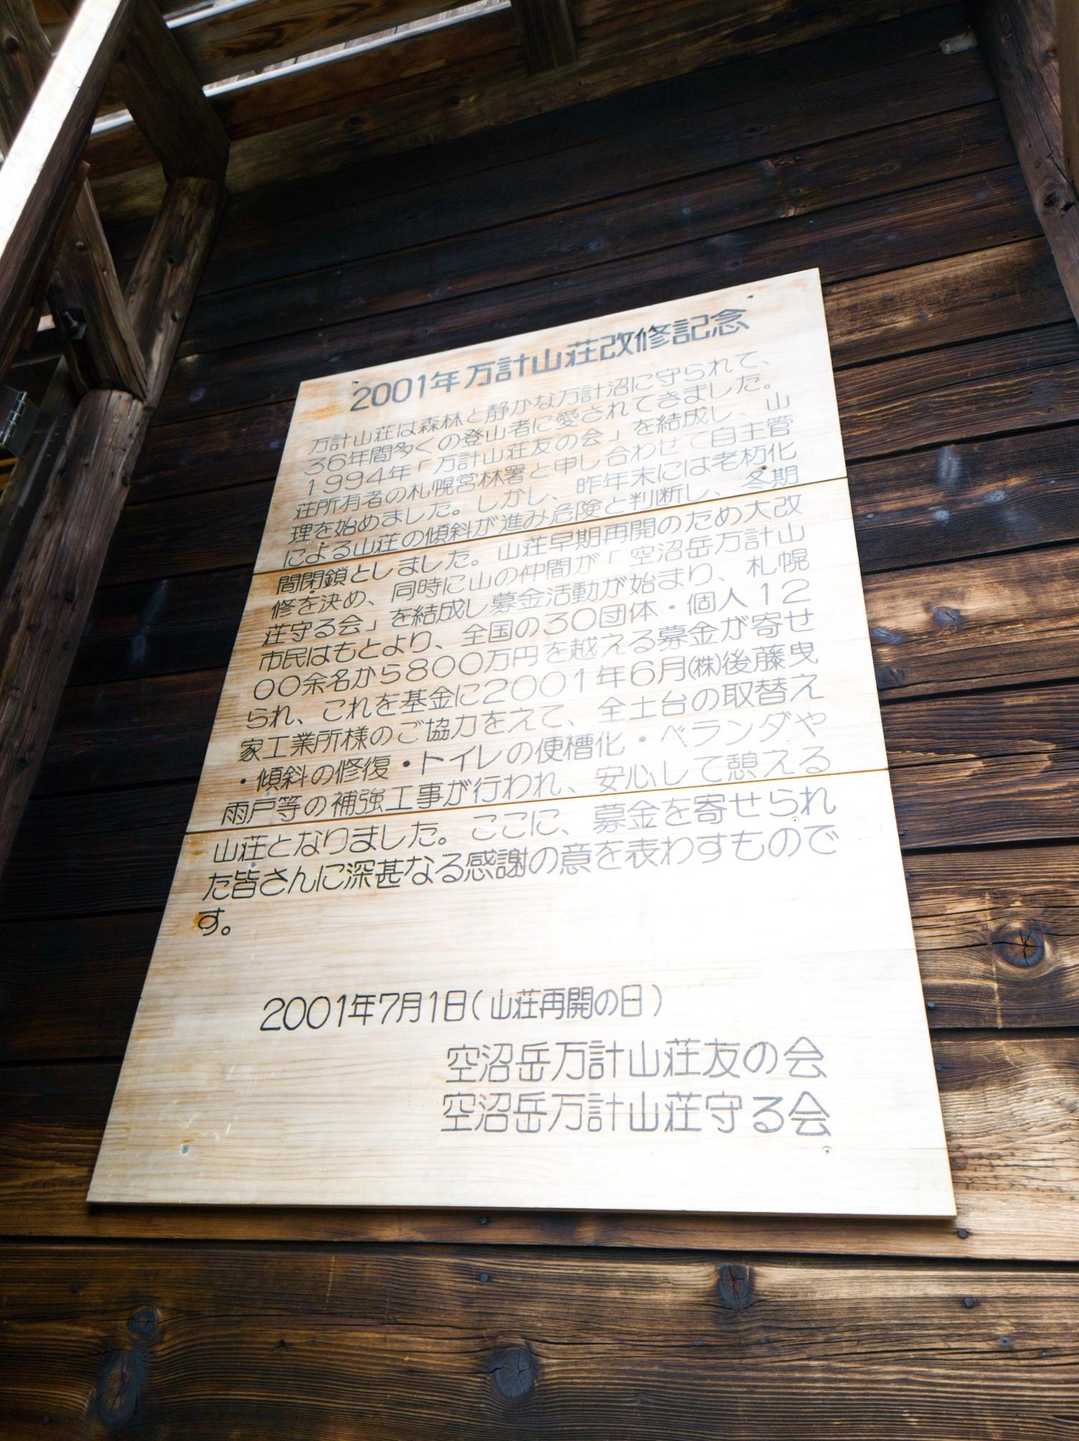 2001年万計山荘改修記念
万計山荘は森林と静かな万計沼に守られて、
36年間多くの登山者に愛されてきました。
1994年「万計山荘友の会」を結成し、山
荘所有者の札幌営林署と申し合わせて自主管
理を始めました。しかし、昨年末には老朽化
による山荘の傾斜が進み危険と判断し、冬期
間閉鎖としました。山荘早期再開のため大改
修を決め、同時に山の仲間が「空沼岳万計山
荘守る会」を結成し募金活動が始まり、札幌
市民はもとより、全国の30団体・個人12
00余名から800万円を越える募金が寄せ
られ、これを基金に2001年6月㈱後藤曳
家工業所様のご協力をえて、全土台の取替え
・傾斜の修復・トイレの便槽化・ベランダや
雨戸等の補強工事が行われ、安心して憩える
山荘となりました。ここに、募金を寄せられ
た皆さんに深甚なる感謝の意を表わすもので
す。
2001年7月1日(山荘再開の日)
空沼岳万計山荘友の会
空沼岳万計山荘守る会